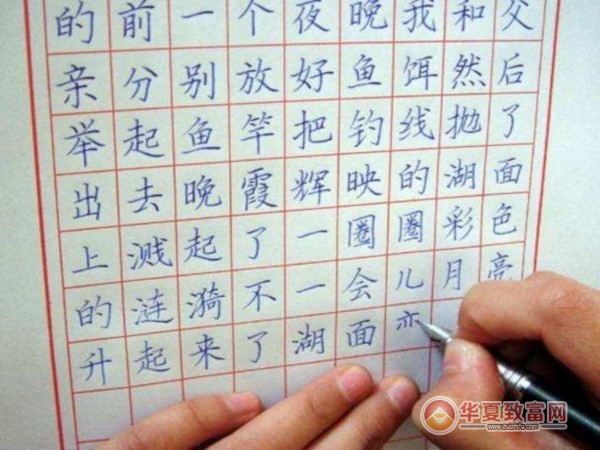 的前一个夜晚我和父
亲分别放好鱼饵然后
举起鱼竿把钓线抛了
出去晚霞辉映的湖面
上溅起了一圈圈彩色
的涟漪不一会儿月亮
升起来了湖面
华夏致富网
www.zuizhifu.com